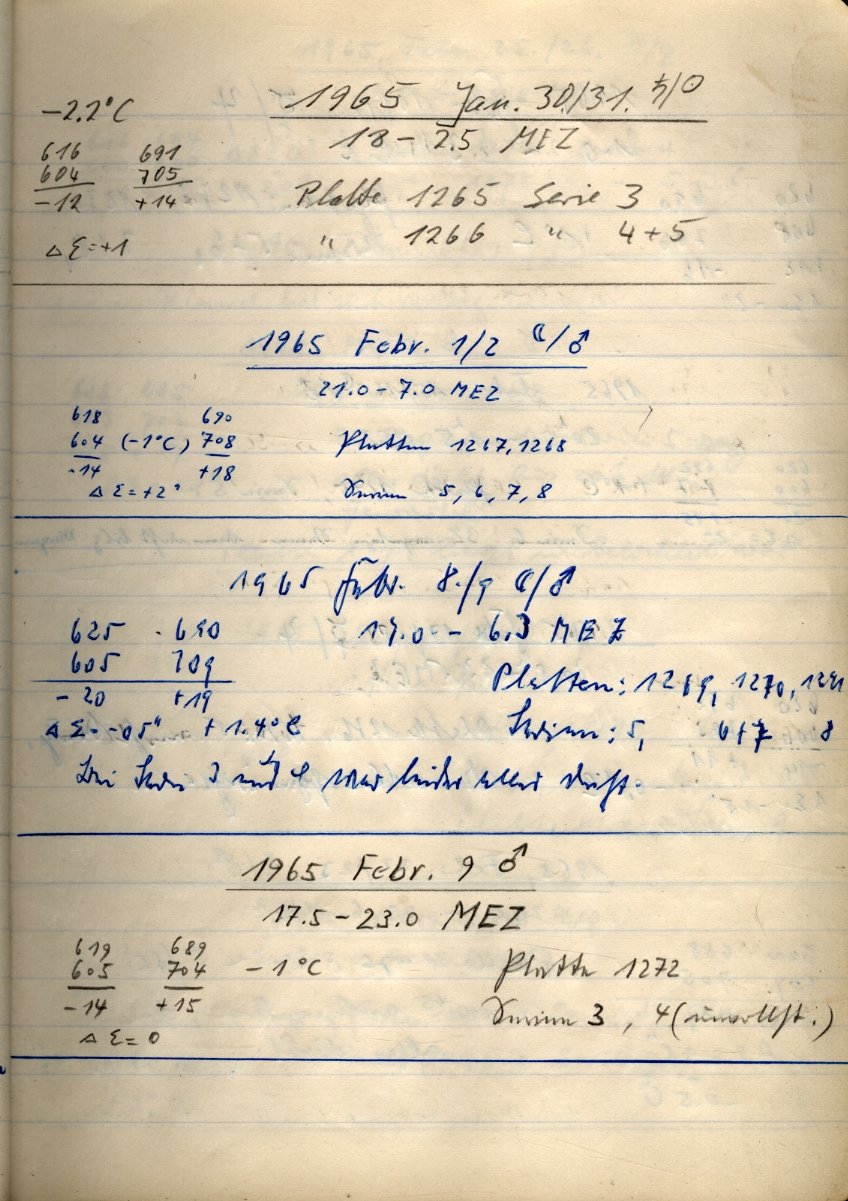 -2.2°C 1965 Jan. 30/31. ♄/☉
18 - 2.5 MEZ
616 691
604 705
-12 +14
Platte 1265 Serie 3
" 1266 " 4+5
Δ Σ = +1
1965 Febr. 1/2 ☾/♂
21.0 - 7.0 MEZ
618 690
604 (-1°C) 708
-14 +18
Platten 1267, 1268
Δ Σ = +2" Serien 5, 6, 7, 8
1965 Febr. 8./9 ☾/♂
625 690 19.0 - 6.3 MEZ
605 709
-20 +19
Platten: 1269, 1270, 1271
Δ Σ = -0.5" +1.4°C Serien: 5, 6+7 8
Bei Serie und war leider alles
1965 Febr. 9 ♂
17.5 - 23.0 MEZ
619 689
605 704 -1°C
-14 +15
Platte 1272
Serien 3, 4 (unvollst.)
Δ Σ = 0